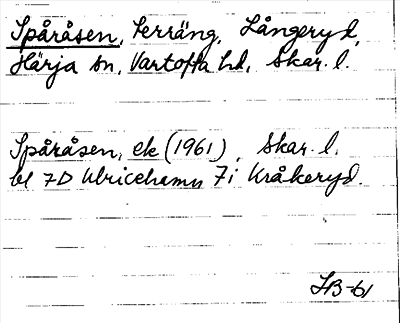 Spåråsen, terräng, Långeryd,
Härja sn, Vartofta hd, Skar. l.
Spåråsen, ek (1961), Skar. l.
bl 7D Ulricehamn 7i Kråkeryd.
HB-61